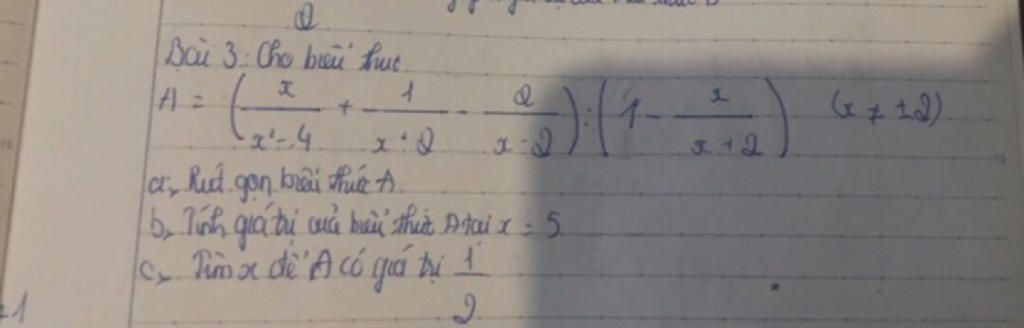 2
Bài 3: Cho biểu thức
A = (x/(x²-4) + 1/(x+2) - 2/(x-2)) : (1 - x/(x+2)) (x ≠ ±2)
a, Rút gọn biểu thức A
b, Tính giá trị của biểu thức A tại x = 5
c, Tìm x để A có giá trị 1/2